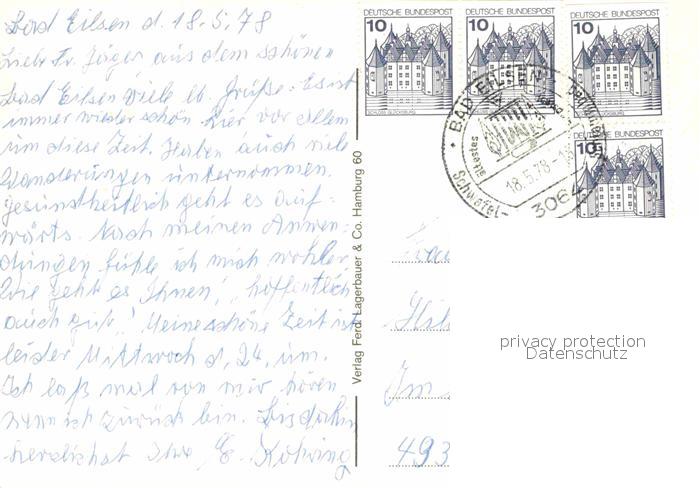 Bad Eilsen d. 18.5.78
Liebe Fr. Jäger aus dem schönen
Bad Eilsen viele lb. Grüße. Es ist
immer wieder schön hier vor allem
um diese Zeit. Haben auch viele
Wanderungen unternommen.
Gesundheitlich geht es auf-
wärts. Nach meinen Anwen-
dungen fühle ich mich wohler
Wie geht es Ihnen, hoffentlich
auch gut! Meine schöne Zeit ist
leider Mittwoch d. 24. um.
Ich laß mal von mir hören
wenn ich zurück bin. Bis dahin
herzlichst Ihre E.
Verlag Ferd. Lagerbauer & Co. Hamburg 60
DEUTSCHE BUNDESPOST
10
SCHLOSS GLÜCKSBURG
DEUTSCHE BUNDESPOST
10
DEUTSCHE BUNDESPOST
10
DEUTSCHE BUNDESPOST
10
BAD EILSEN
18.5.78
3064
Schwefel-
Frau
Hil
Im
493
privacy protection
Datenschutz